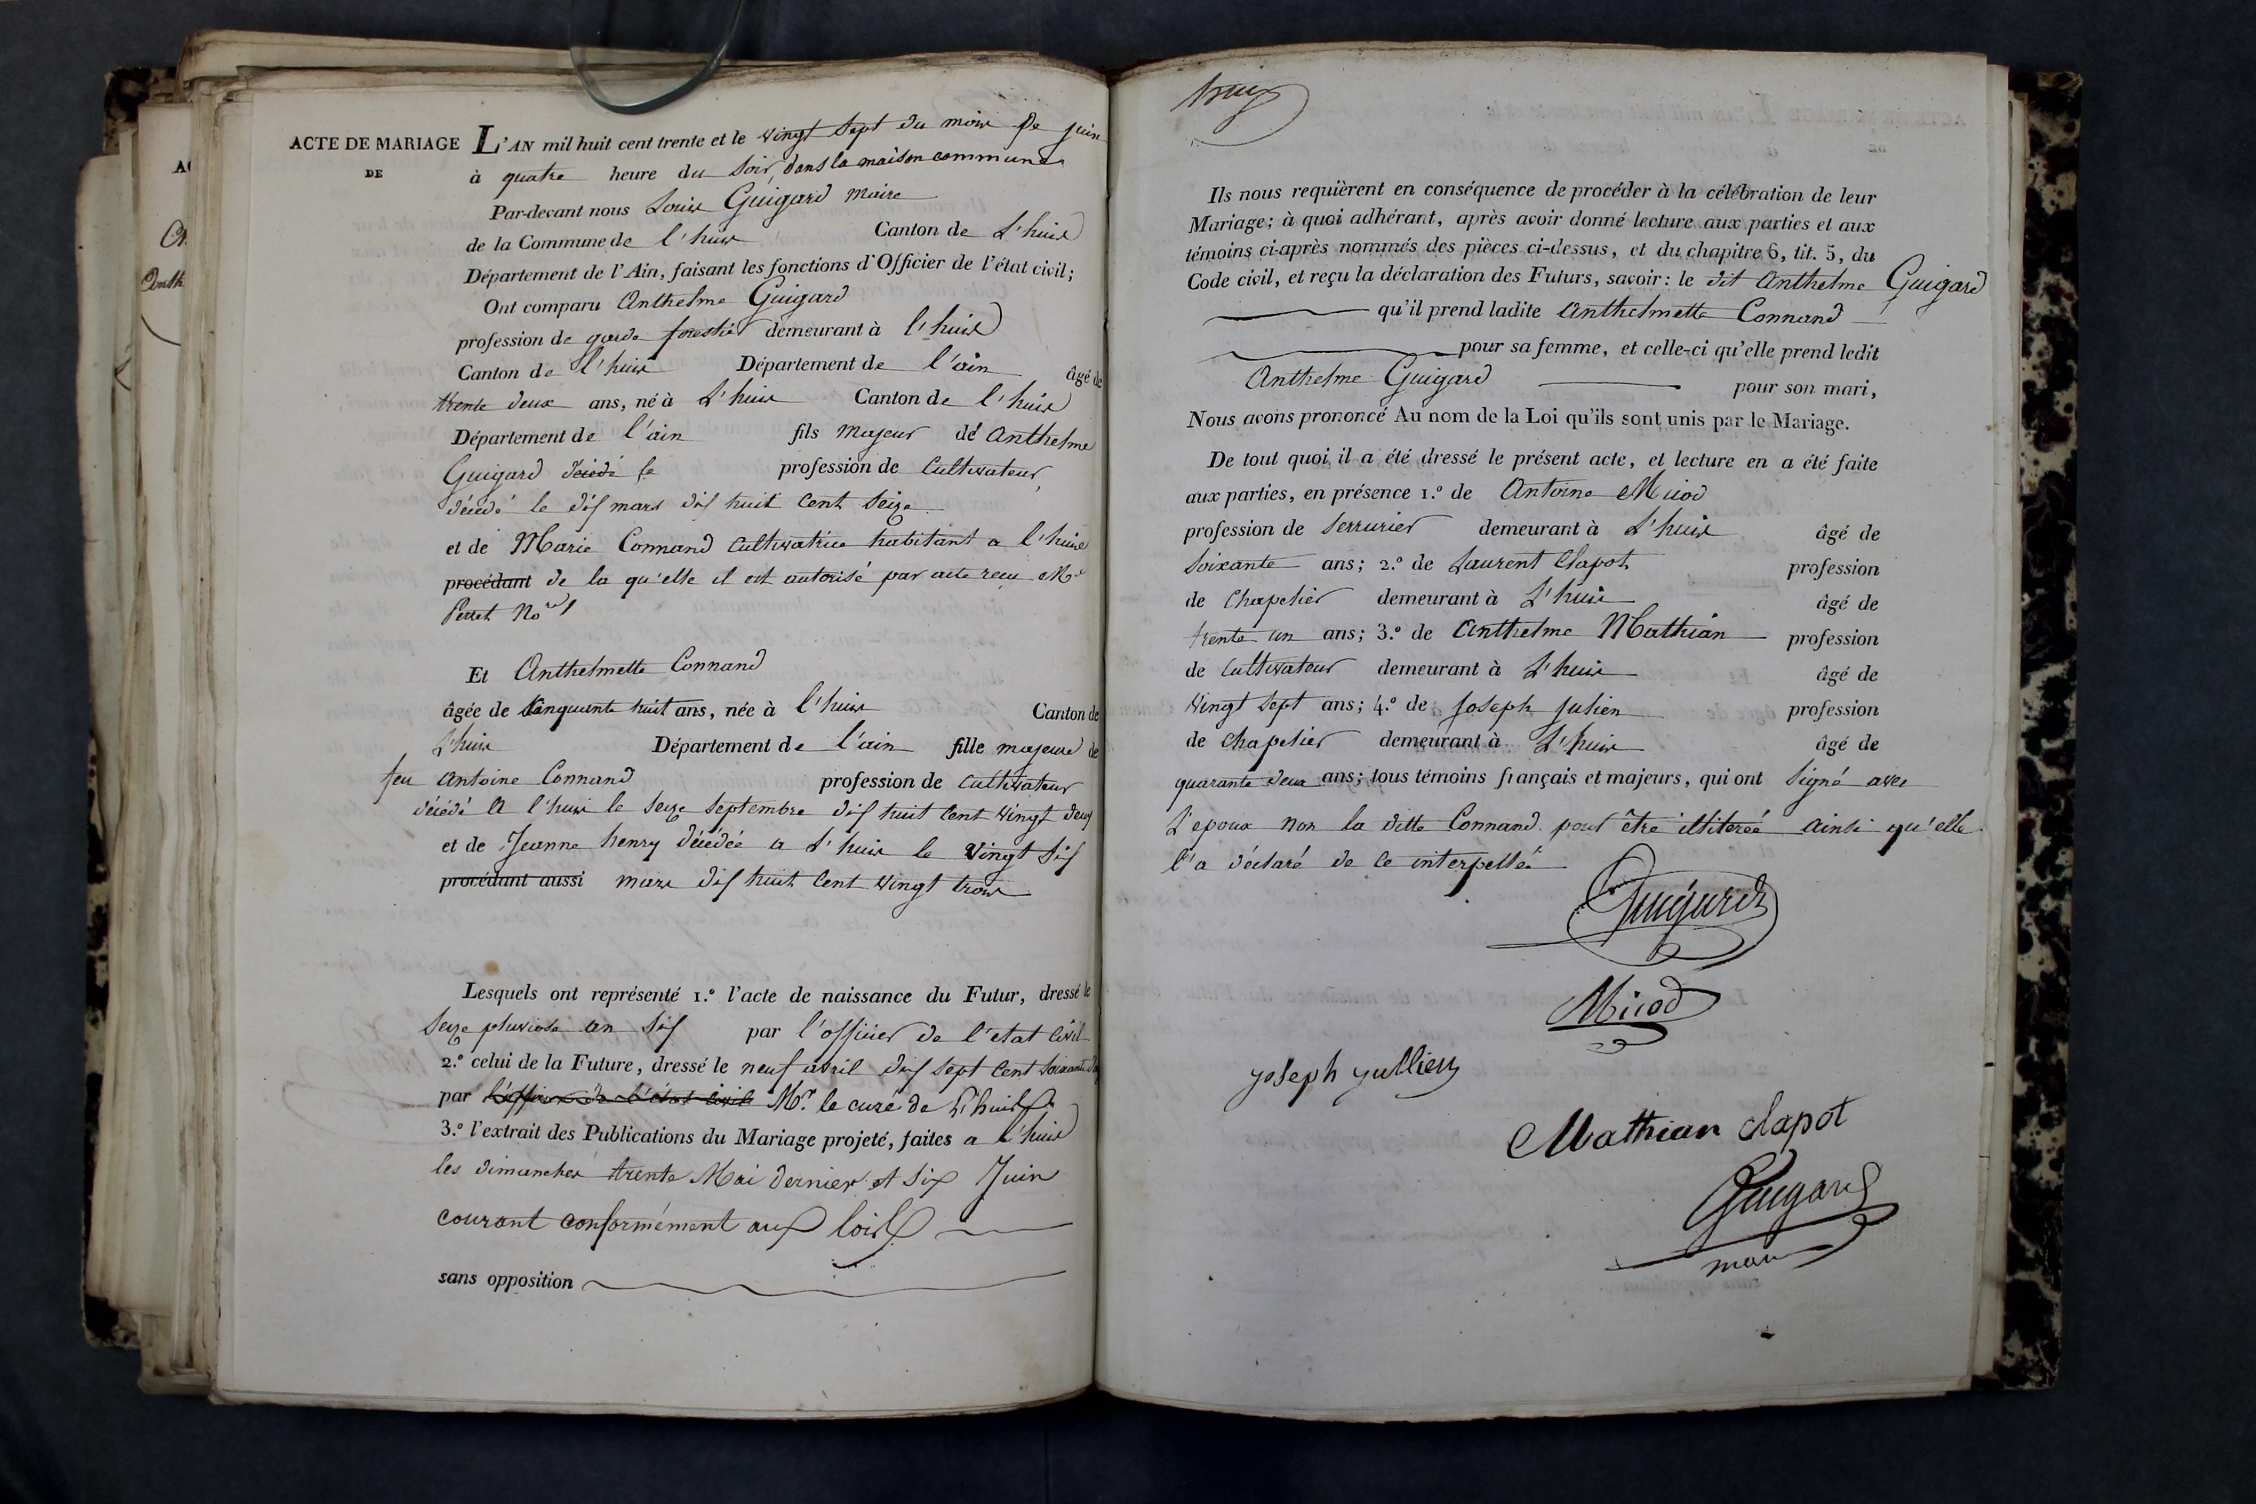 ACTE DE MARIAGE
DE
L'AN mil huit cent trente et le vingt sept du mois de juin
à quatre heure du soir, dans la maison commune
Par-devant nous Louis Guigard maire
de la Commune de l'huis Canton de L'huis
Département de l'Ain, faisant les fonctions d'Officier de l'état civil;
Ont comparu Anthelme Guigard
profession de garde forestier demeurant à l'huis
Canton de l'huis Département de l'ain âgé de
trente deux ans, né à L'huis Canton de l'huis
Département de l'ain fils majeur de Anthelme
Guigard décédé le profession de Cultivateur,
décédé le dix mars dix huit cent seize
et de Marie Connand Cultivatrice habitant a l'huis
procédant de la qu'elle il est autorisé par acte recu Me
Perret Nore
Et Anthelmette Connand
âgée de Cinquante huit ans, née à l'huis Canton de
L'huis Département de l'ain fille majeure de
feu Antoine Connand profession de Cultivateur
décédé a l'huis le seize septembre dix huit cent vingt deux
et de Jeanne henry décédée a L'huis le vingt six
procédant aussi mars dix huit cent vingt trois
Lesquels ont représenté 1.º l'acte de naissance du Futur, dressé le
seize pluviose an six par l'officier de l'etat civil
2.º celui de la Future, dressé le neuf avril dix sept cent soixante
par l'officier de l'état civil Mr. le curé de L'huis
3.º l'extrait des Publications du Mariage projeté, faites a l'huis
les dimanches trente Mai dernier et six Juin
courant conformément aux lois
sans opposition
Ils nous requièrent en conséquence de procéder à la célébration de leur
Mariage; à quoi adhérant, après avoir donné lecture aux parties et aux
témoins ci-après nommés des pièces ci-dessus, et du chapitre 6, tit. 5, du
Code civil, et reçu la déclaration des Futurs, savoir: le dit Anthelme Guigard
qu'il prend ladite Anthelmette Connand
pour sa femme, et celle-ci qu'elle prend ledit
Anthelme Guigard pour son mari,
Nous avons prononcé Au nom de la Loi qu'ils sont unis par le Mariage.
De tout quoi il a été dressé le présent acte, et lecture en a été faite
aux parties, en présence 1.º de Antoine Micod
profession de serrurier demeurant à L'huis âgé de
soixante ans; 2.º de Laurent Clapot profession
de Chapelier demeurant à L'huis âgé de
trente un ans; 3.º de Anthelme Mathian profession
de cultivateur demeurant à L'huis âgé de
vingt sept ans; 4.º de Joseph Julien profession
de chapelier demeurant à L'huis âgé de
quarante deux ans; tous témoins français et majeurs, qui ont signé avec
L'epoux non la ditte Connand pour être illiterée ainsi qu'elle
l'a déclaré de ce interpellée
Guigard
Micod
joseph jullien
Mathian clapot
Guigard
maire